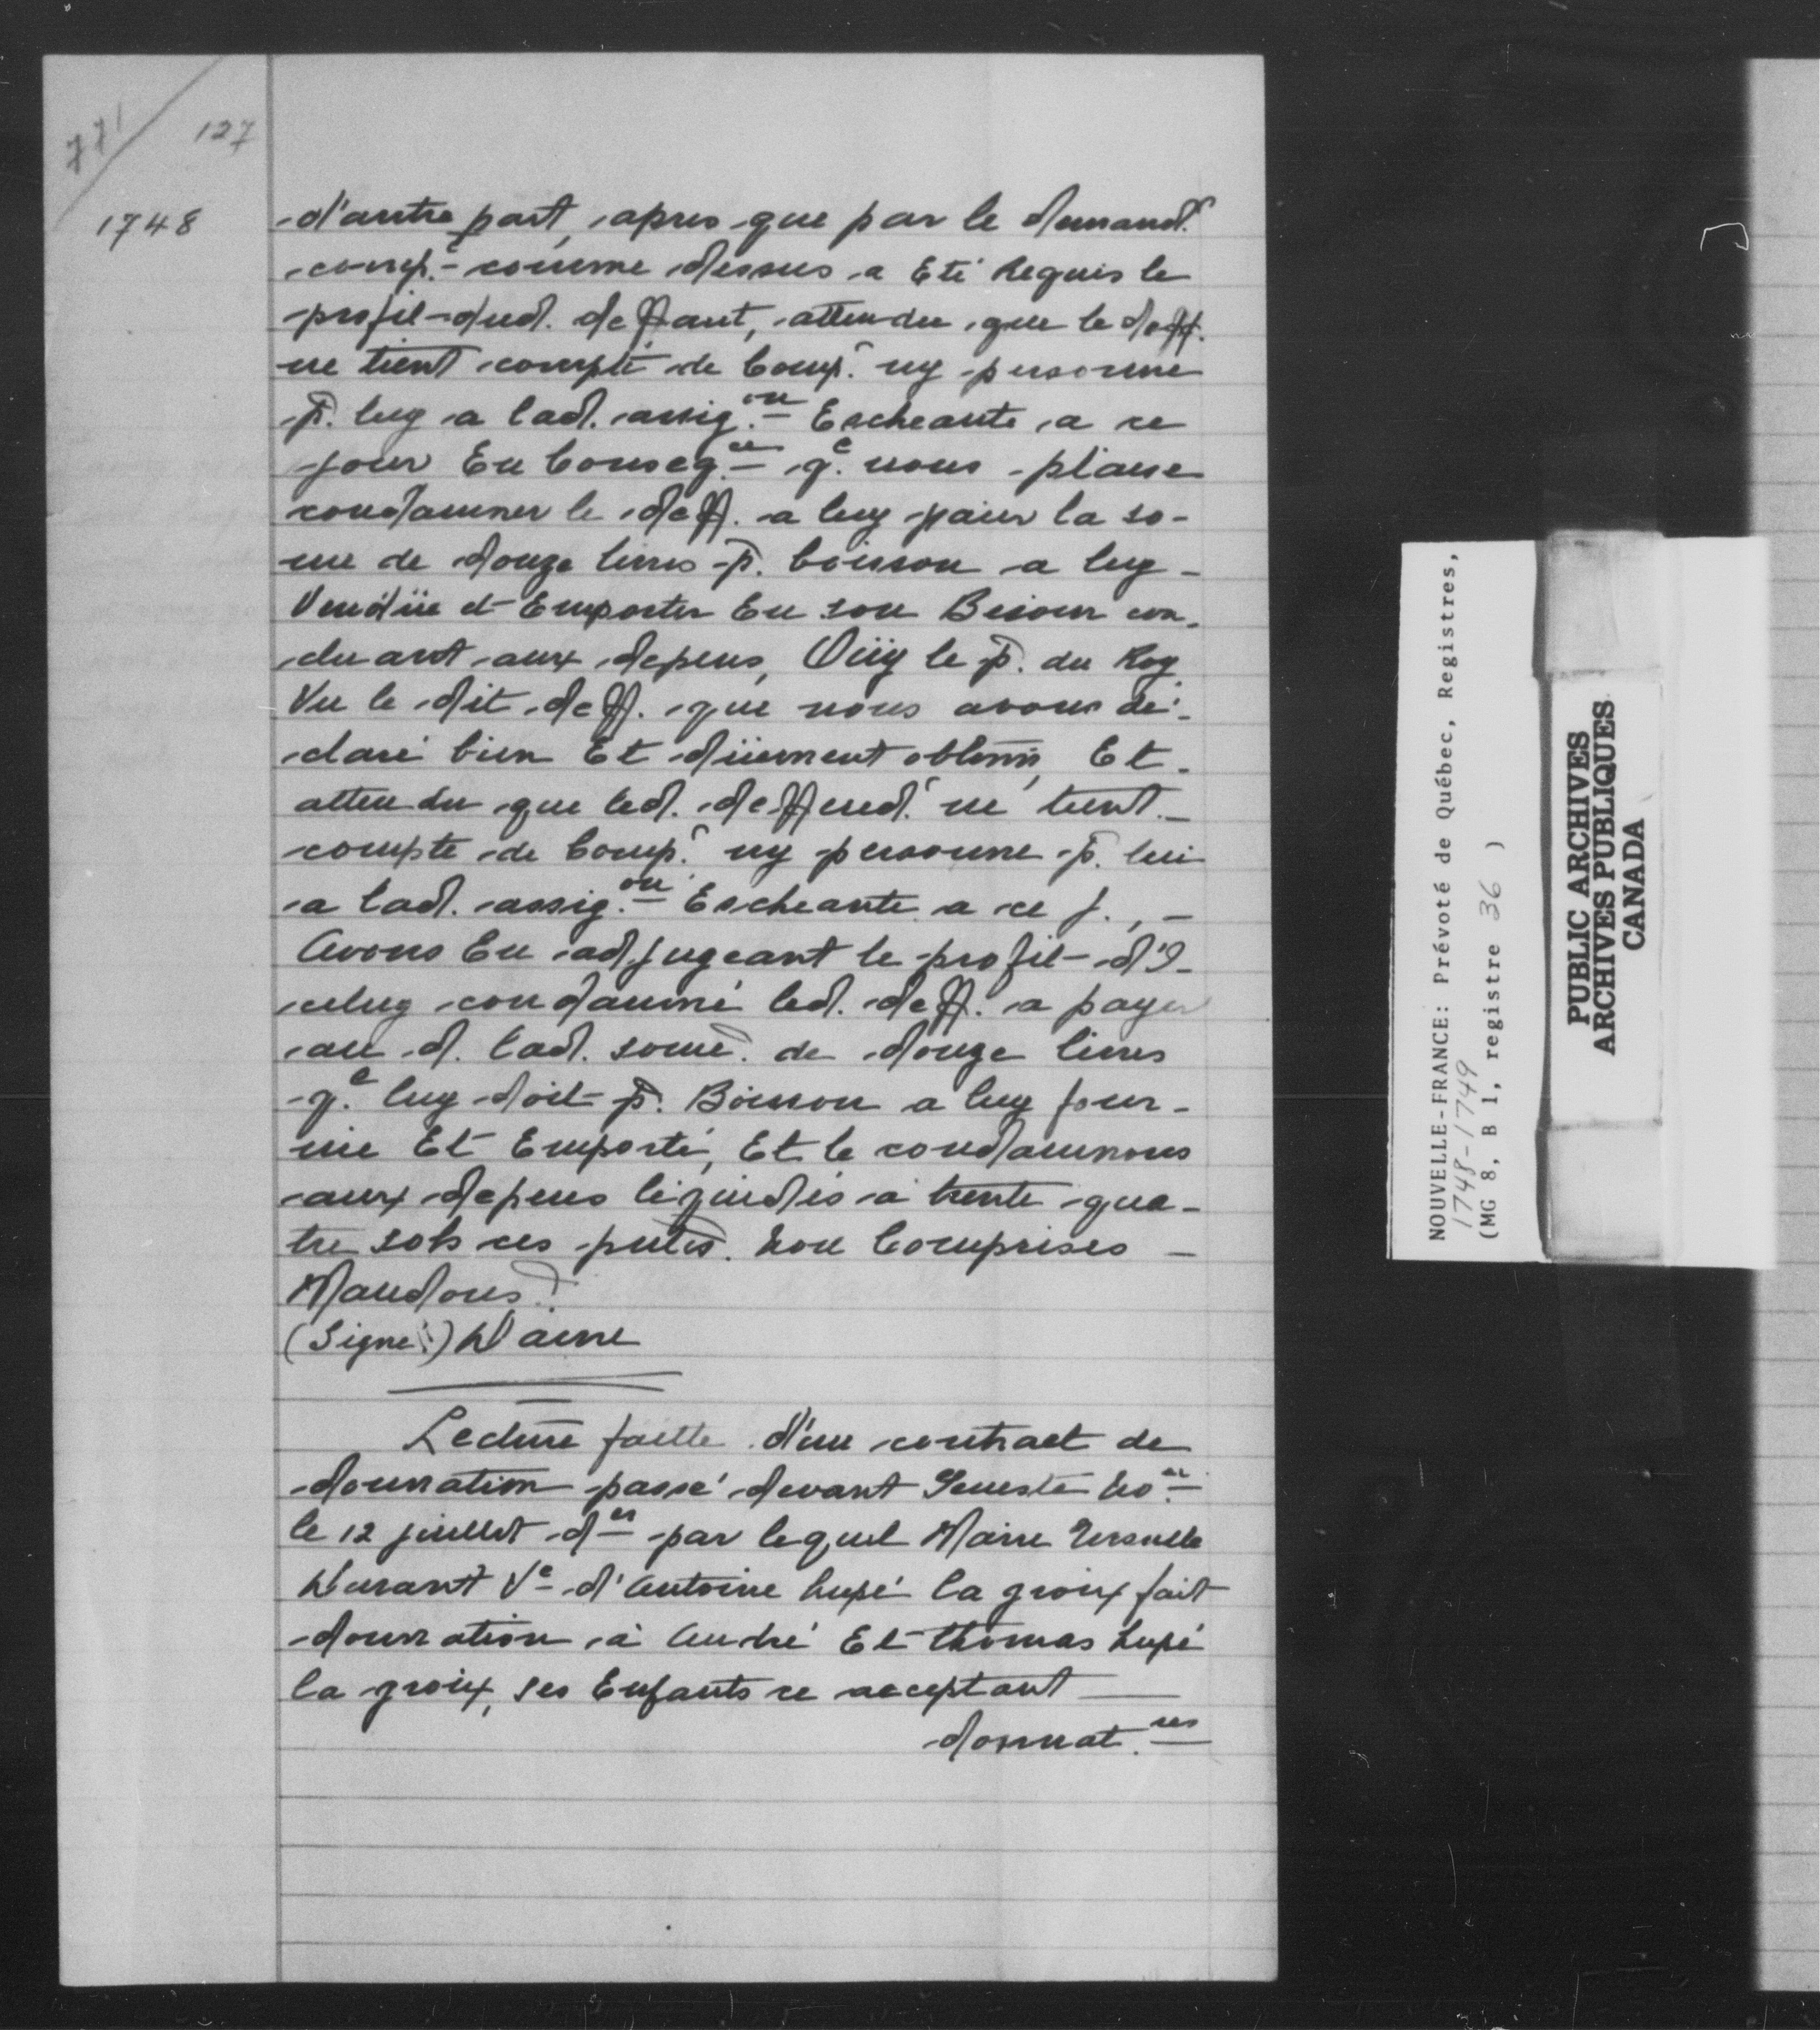 771
127
1748
d'autre part, apres que par le demand.r
comp.t comme dessus a Eté Requis le
profit dud. deffaut, attendu que le deff.
ne tient compte de Comp.r ny personne
p. luy a lad. assig.on Escheante a ce
jour En Conseq.ce q.e nous plaise
condamner le deff. a luy paier la so-
me de douze livres p. boisson a luy
Vendüe et Emporter En son Besoin con-
cluant aux depens, Oüy le p. du Roy
Vu le dit deff. que nous avons dé-
claré bien Et düement obtenu, Et
attendu que led. deffend.r ne tient
compte de Comp.r ny personne p. lui
a lad. assig.on Escheante a ce j.,
Avons En adjugeant le profit d'I-
celuy condamné led. deff. a payer
au d. lad. some. de douze livres
q.e luy doit p. Boisson a luy four-
nie Et Emporté, Et le condamnons
aux depens liquidés a trente qua-
tre sols ces pntes. non Comprises
Mandons.
(Signé:) Daine
Lecture faitte d'un contract de
donnation passé devant Geneste no.re
le 12 juillet d.er par lequel Marie Ursulle
Durant V.e d'Antoine hupé la groix fait
donnation à André Et thomas hupé
la groix, ses Enfants ce acceptant
donnat.res
NOUVELLE-FRANCE: Prévoté de Québec, Registres,
1748-1749
(MG 8, B 1, registre 36 )
PUBLIC ARCHIVES
ARCHIVES PUBLIQUES
CANADA